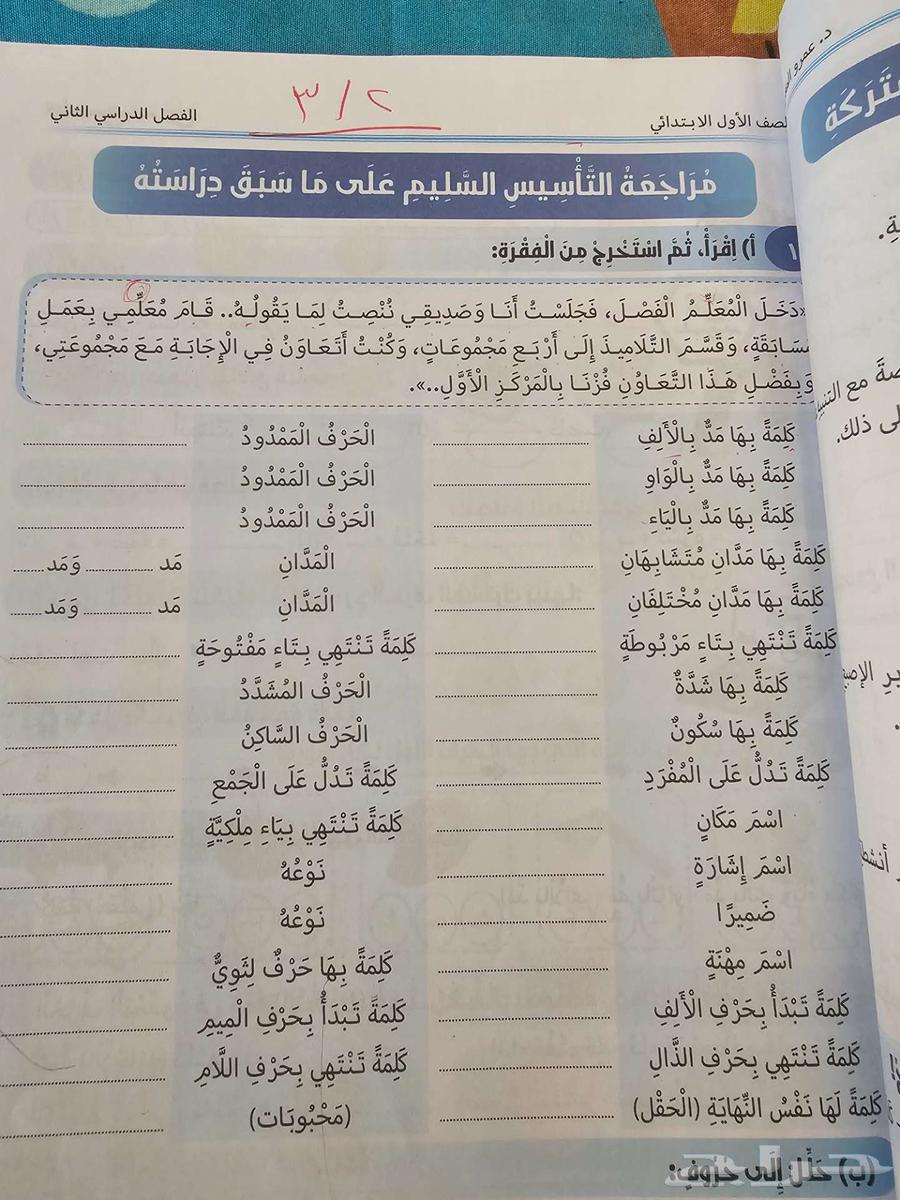 د. عمرو
الصف الأول الابتدائي
٣/٢
الفصل الدراسي الثاني
مُرَاجَعَةُ التَّأْسِيسِ السَّلِيمِ عَلَى مَا سَبَقَ دِرَاسَتُهُ
١ أ) اِقْرَأْ، ثُمَّ اسْتَخْرِجْ مِنَ الْفِقْرَةِ:
«دَخَلَ الْمُعَلِّمُ الْفَصْلَ، فَجَلَسْتُ أَنَا وَصَدِيقِي نُنْصِتُ لِمَا يَقُولُهُ.. قَامَ مُعَلِّمِي بِعَمَلِ
مُسَابَقَةٍ، وَقَسَّمَ التَّلَامِيذَ إِلَى أَرْبَعِ مَجْمُوعَاتٍ، وَكُنْتُ أَتَعَاوَنُ فِي الْإِجَابَةِ مَعَ مَجْمُوعَتِي،
وَبِفَضْلِ هَذَا التَّعَاوُنِ فُزْنَا بِالْمَرْكَزِ الْأَوَّلِ..».
كَلِمَةً بِهَا مَدٌّ بِالْأَلِفِ الْحَرْفُ الْمَمْدُودُ
كَلِمَةً بِهَا مَدٌّ بِالْوَاوِ الْحَرْفُ الْمَمْدُودُ
كَلِمَةً بِهَا مَدٌّ بِالْيَاءِ الْحَرْفُ الْمَمْدُودُ
كَلِمَةً بِهَا مَدَّانِ مُتَشَابِهَانِ الْمَدَّانِ مَد وَمَد
كَلِمَةً بِهَا مَدَّانِ مُخْتَلِفَانِ الْمَدَّانِ مَد وَمَد
كَلِمَةً تَنْتَهِي بِتَاءٍ مَرْبُوطَةٍ كَلِمَةً تَنْتَهِي بِتَاءٍ مَفْتُوحَةٍ
كَلِمَةً بِهَا شَدَّةٌ الْحَرْفُ الْمُشَدَّدُ
كَلِمَةً بِهَا سُكُونٌ الْحَرْفُ السَّاكِنُ
كَلِمَةً تَدُلُّ عَلَى الْمُفْرَدِ كَلِمَةً تَدُلُّ عَلَى الْجَمْعِ
اسْمَ مَكَانٍ كَلِمَةً تَنْتَهِي بِيَاءِ مِلْكِيَّةٍ
اسْمَ إِشَارَةٍ نَوْعُهُ
ضَمِيرًا نَوْعُهُ
اسْمَ مِهْنَةٍ كَلِمَةً بِهَا حَرْفٌ لِثَوِيٌّ
كَلِمَةً تَبْدَأُ بِحَرْفِ الْأَلِفِ كَلِمَةً تَبْدَأُ بِحَرْفِ الْمِيمِ
كَلِمَةً تَنْتَهِي بِحَرْفِ الذَّالِ كَلِمَةً تَنْتَهِي بِحَرْفِ اللَّامِ
كَلِمَةً لَهَا نَفْسُ النِّهَايَةِ (الْحَقْل) (مَحْبُوبَات)
(ب) حَلِّلْ إِلَى حُرُوفٍ:
مع
ى ذلك.